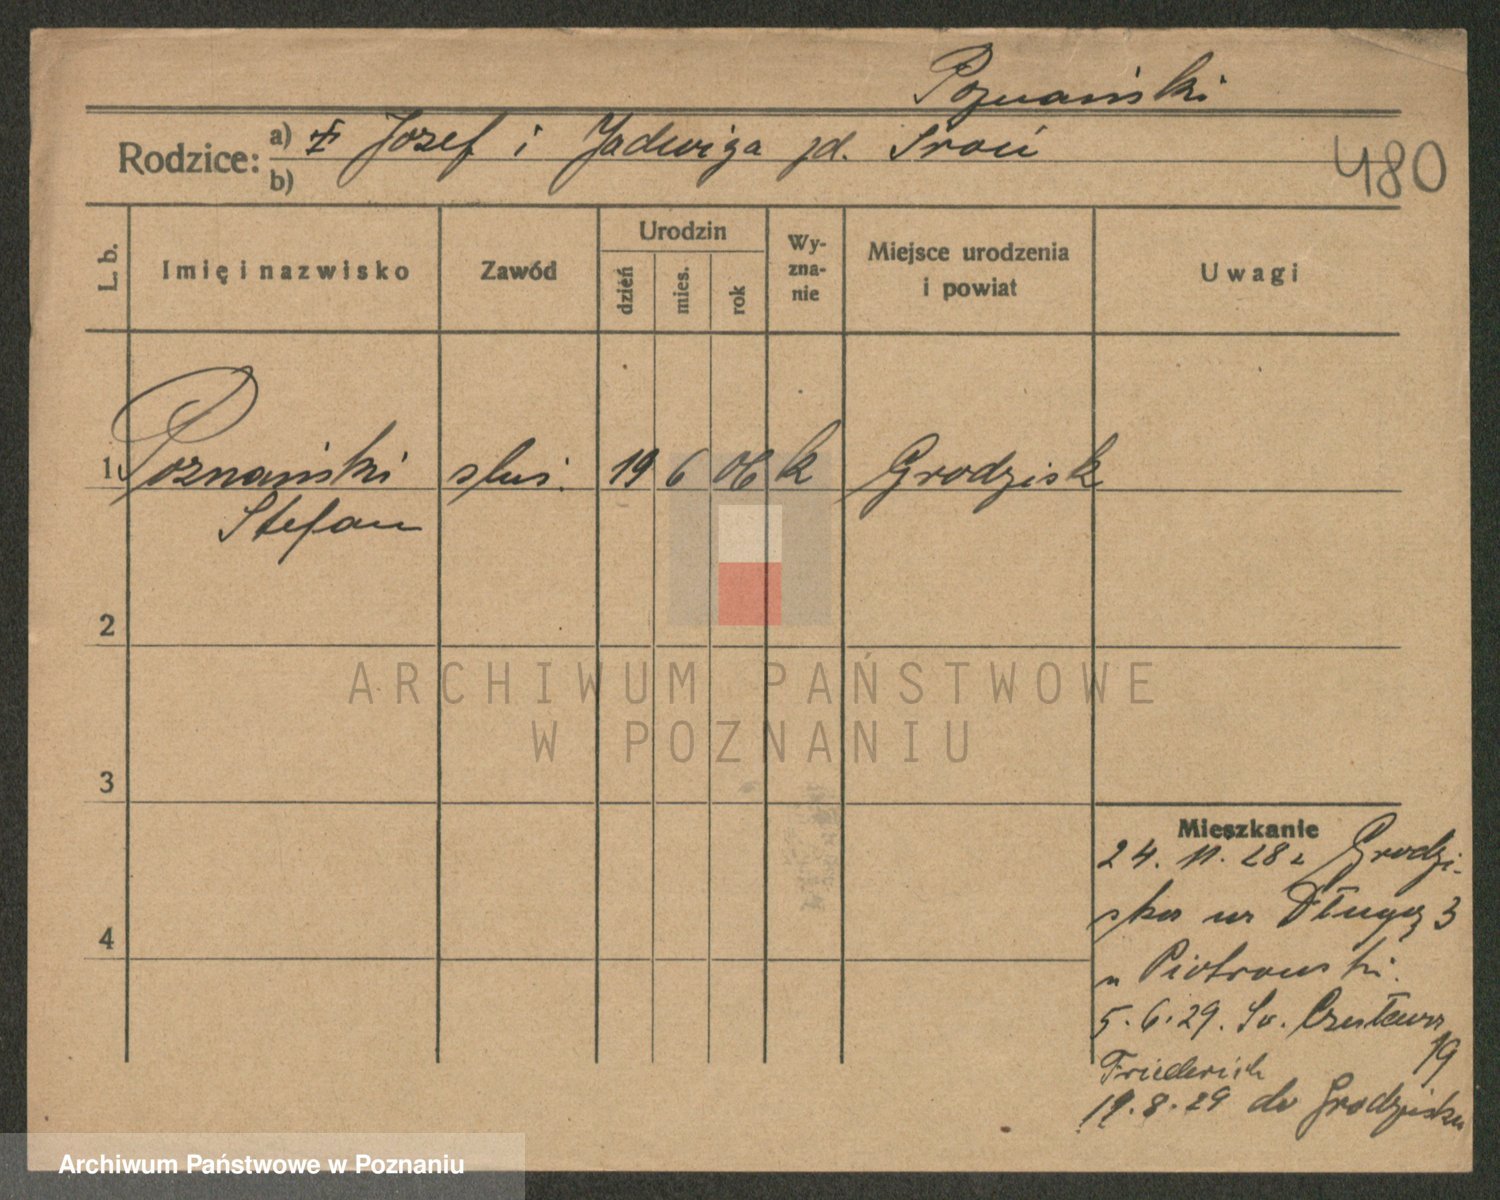 Poznański
Rodzice:
a) z Jozef i Jadwiga zd. Sroń
b)
480
L. b.
Imię i nazwisko
Zawód
Urodzin
dzień
mies.
rok
Wy-
zna-
nie
Miejsce urodzenia
i powiat
Uwagi
1. Poznański sluś. 19 6 06 k Grodzisk
Stefan
2
3
4
ARCHIWUM PAŃSTWOWE
W POZNANIU
Mieszkanie
24. 11. 28 z Grodzi-
ska ur Długą 3
u Piotrowski.
5. 6. 29. Sw. Czesława
19
Friederich
19. 8. 29 do Grodziska
Archiwum Państwowe w Poznaniu